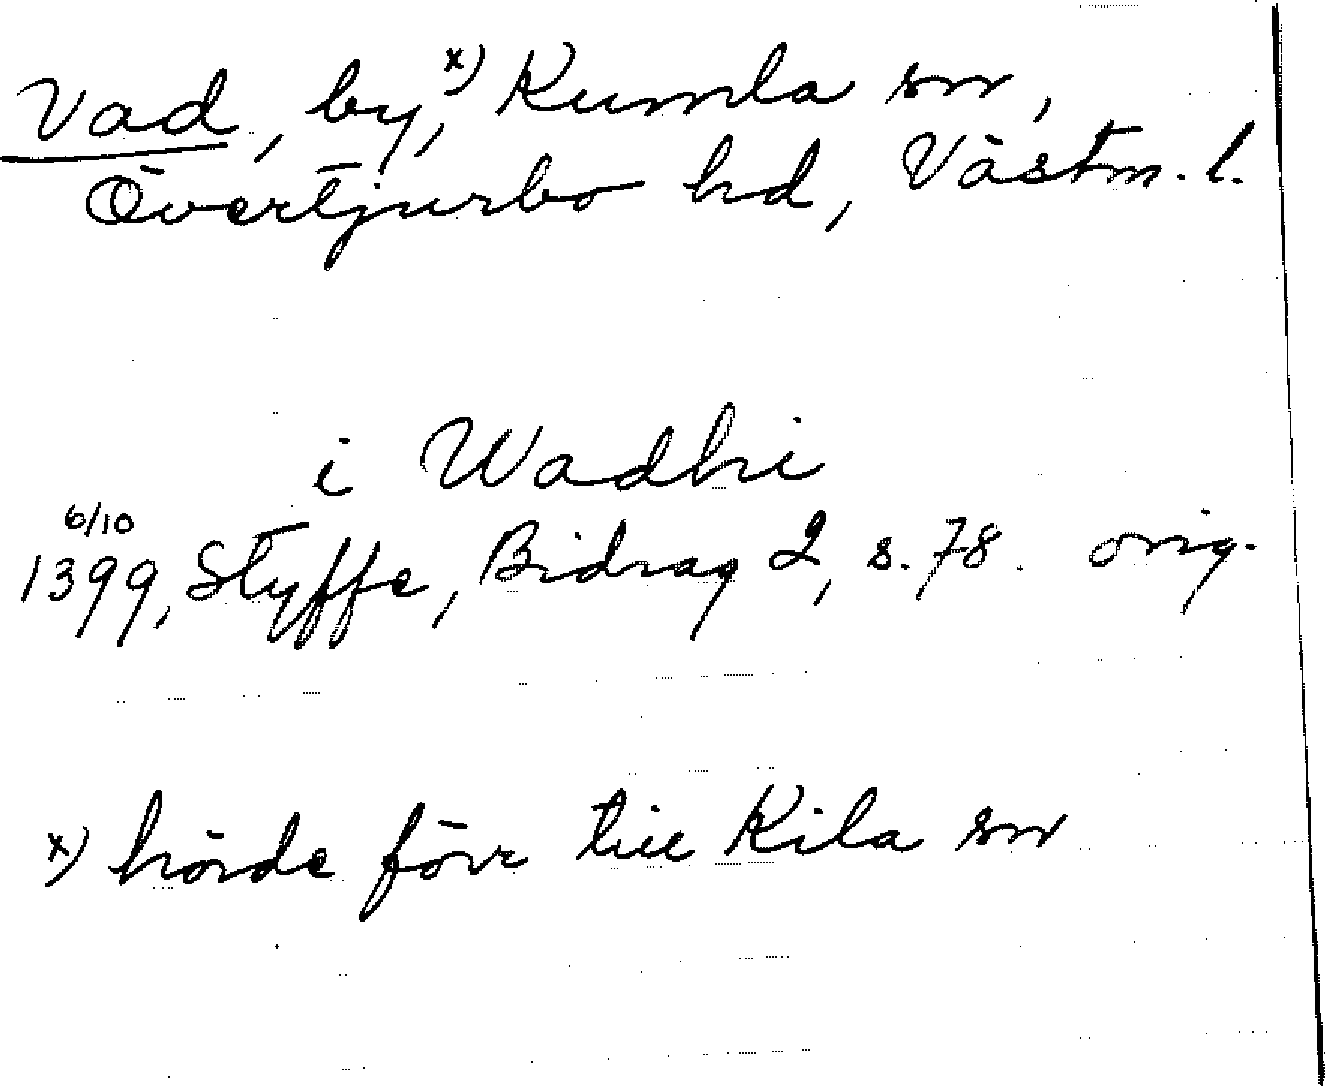 Vad, by,x) Kumla sn,
Övertjurbo hd, Västm. l.
i Wadhi
6/10
1399, Styffe, Bidrag 2, s. 78. orig.
x) hörde förr till Kila sn